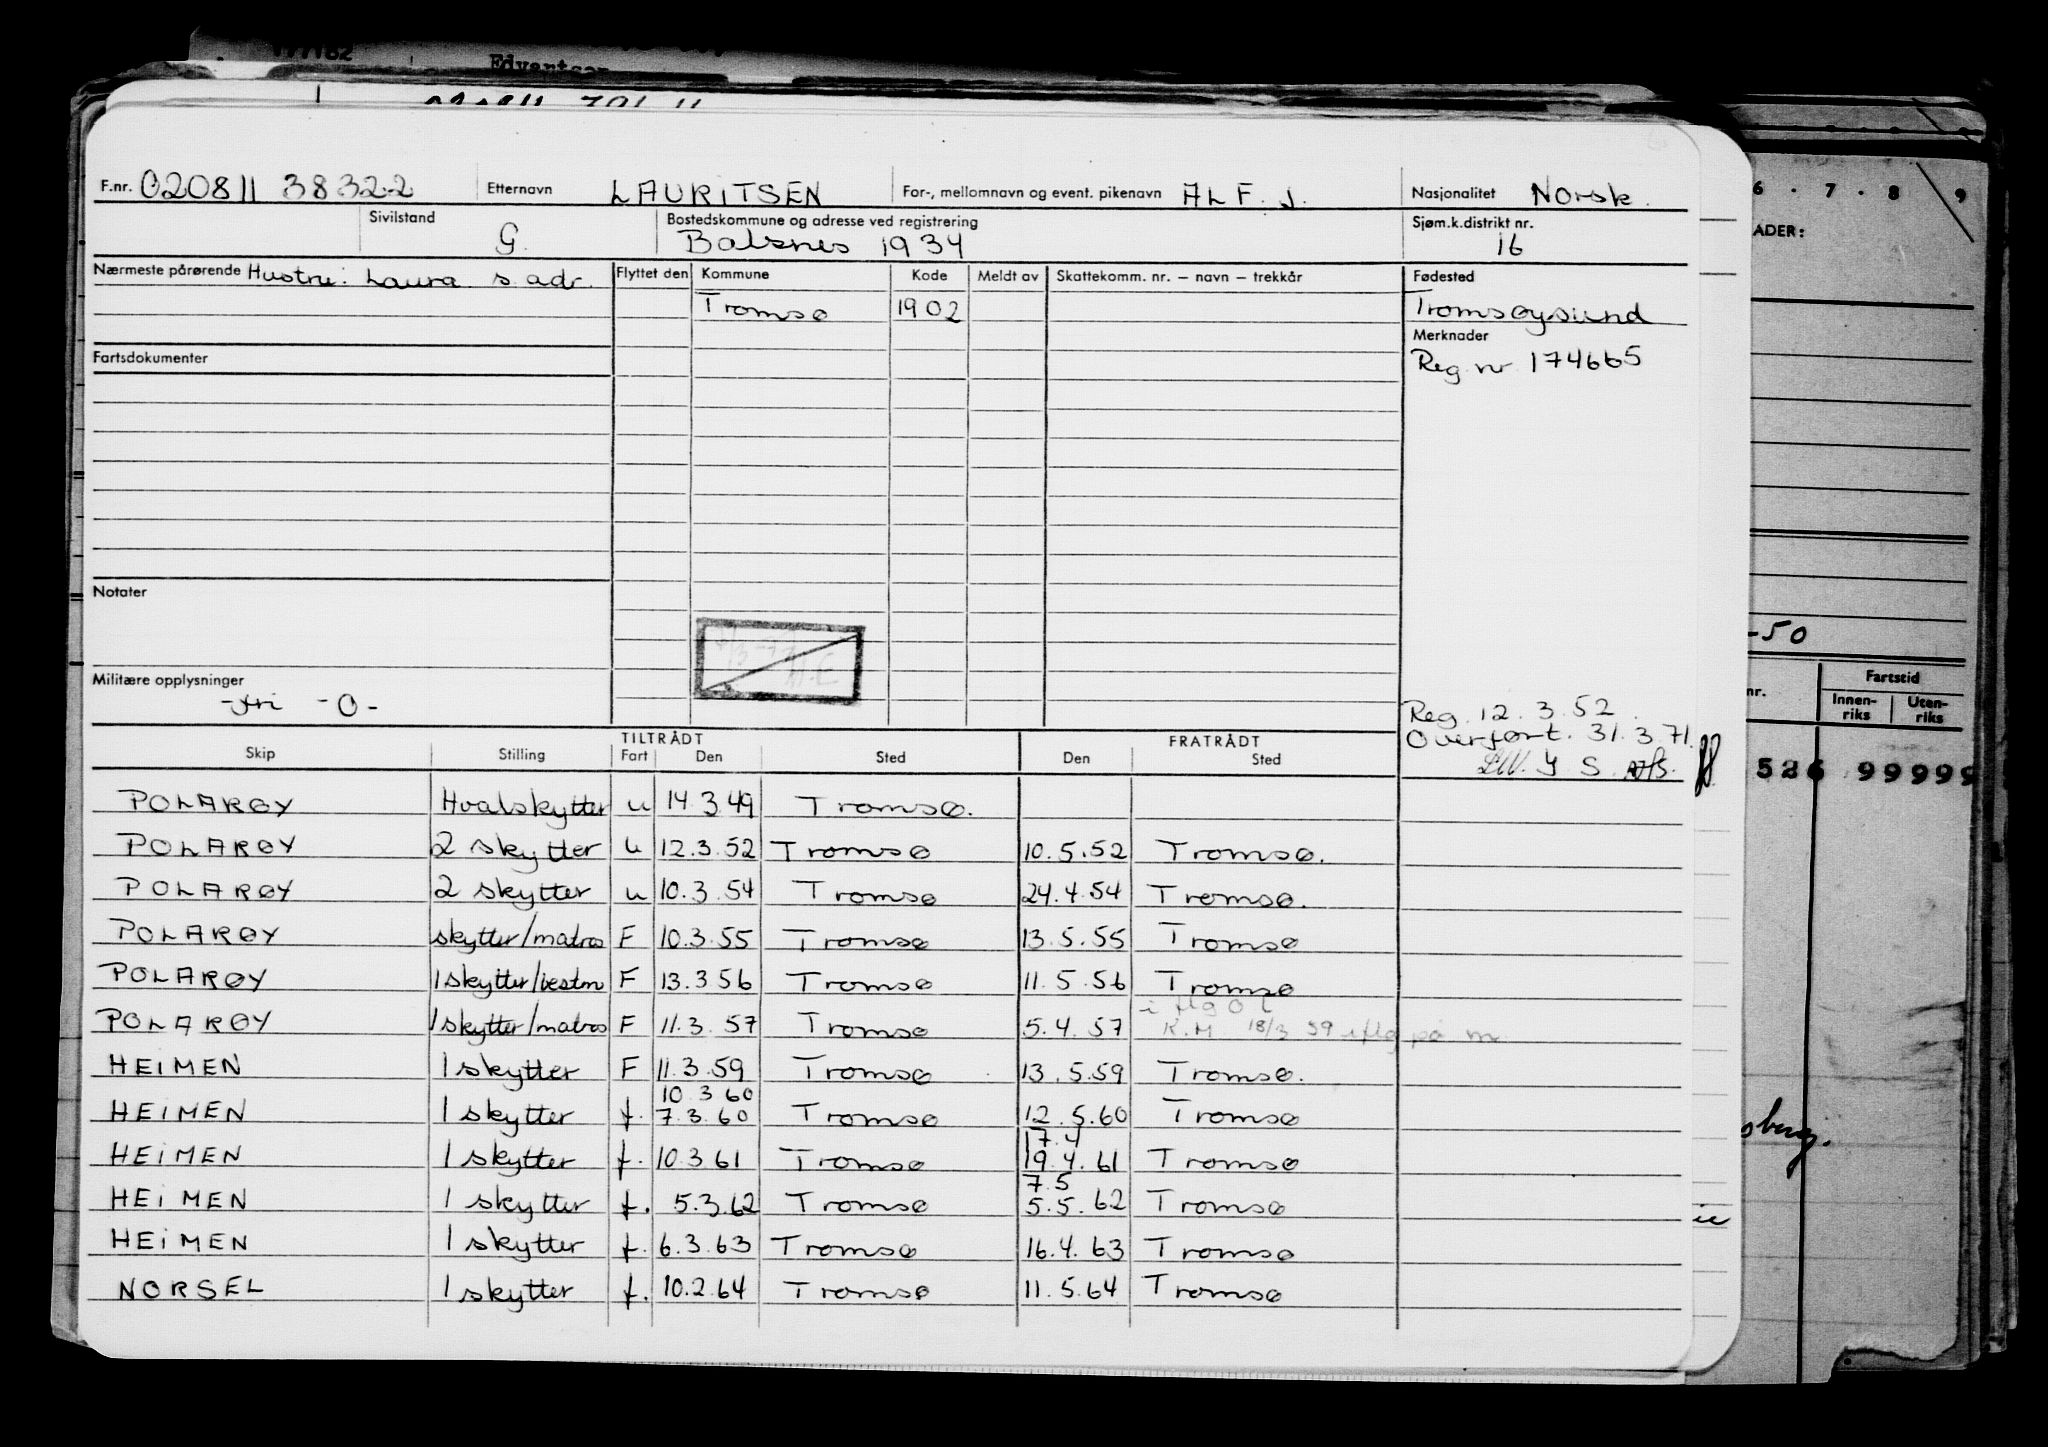 Edvartsen
F.nr. 020811 38322 Etternavn LAURITSEN For-, mellomnavn og event. pikenavn ALF. J. Nasjonalitet Norsk.
Sivilstand G. Bostedskommune og adresse ved registrering Balsnes 1934 Sjøm.k.distrikt nr. 16
Nærmeste pårørende Hustru: Laura s. adr. Flyttet den Kommune Kode Meldt av Skattekomm. nr. – navn – trekkår Fødested
Tromsø 1902 Tromsøysund
Merknader
Fartsdokumenter Reg. nr 174665
Notater
Militære opplysninger
-fri -0-
Reg. 12.3.52.
Overført. 31.3.71.
TILTRÅDT FRATRÅDT
Skip Stilling Fart Den Sted Den Sted
POLARØY Hvalskytter u 14.3.49 Tromsø.
POLARØY 2 skytter u 12.3.52 Tromsø 10.5.52 Tromsø.
POLARØY 2 skytter u 10.3.54 Tromsø 24.4.54 Tromsø.
POLARØY skytter/matros F 10.3.55 Tromsø 13.5.55 Tromsø
POLARØY 1skytter/bestm F 13.3.56 Tromsø 11.5.56 Tromsø
i flg O L
POLARØY 1skytter/matros F 11.3.57 Tromsø 5.4.57 K.M 18/3 59 iflg på m
HEIMEN 1 skytter F 11.3.59 Tromsø 13.5.59 Tromsø.
10 3 60
HEIMEN 1 skytter f. 7.3.60 Tromsø 12.5.60 Tromsø
17.4
HEIMEN 1 skytter f. 10.3.61 Tromsø 19.4.61 Tromsø
7.5
HEIMEN 1 skytter f. 5.3.62 Tromsø 5.5.62 Tromsø
HEIMEN 1 skytter f. 6.3.63 Tromsø 16.4.63 Tromsø
NORSEL 1 skytter f. 10.2.64 Tromsø 11.5.64 Tromsø
6 . 7 . 8 . 9
ADER:
-50
nr. Fartstid
Innen-riks Uten-riks
526 99999